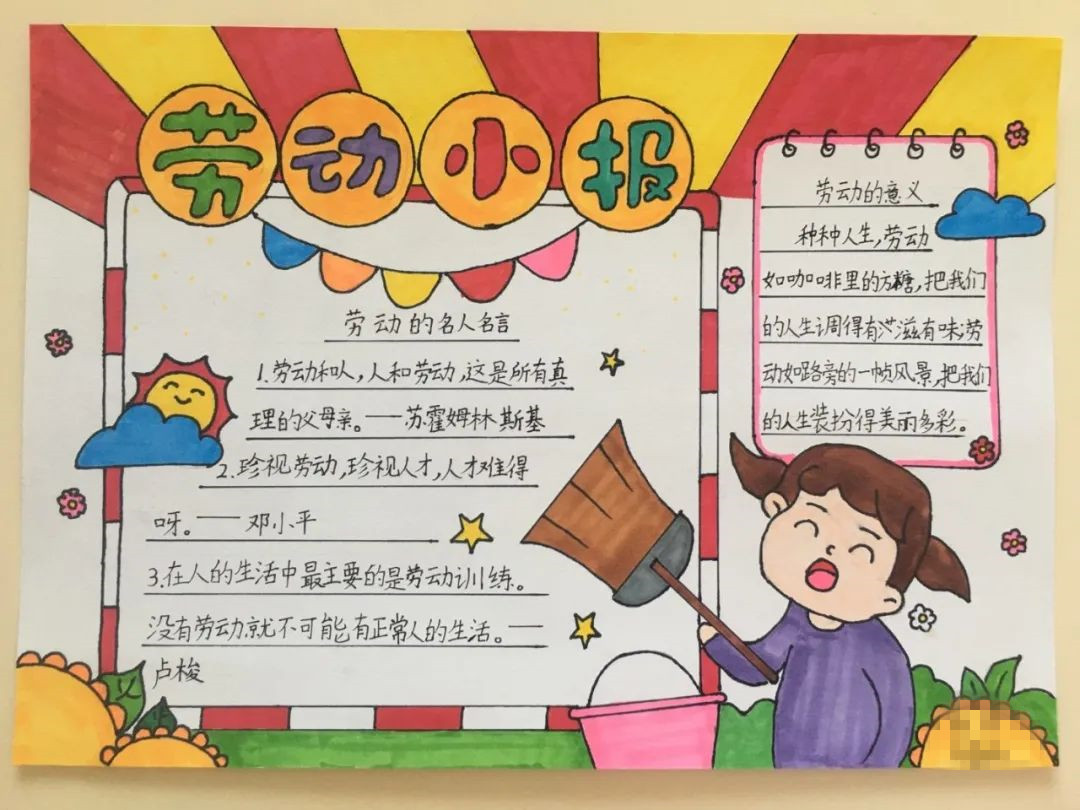 劳动小报
劳动的名人名言
1.劳动和人,人和劳动,这是所有真
理的父母亲。——苏霍姆林斯基
2.珍视劳动,珍视人才,人才难得
呀。——邓小平
3.在人的生活中最主要的是劳动训练。
没有劳动就不可能有正常人的生活。——
卢梭
劳动的意义
种种人生,劳动
如咖啡里的方糖,把我们
的人生调得有滋有味;劳
动如路旁的一帧风景,把我们
的人生装扮得美丽多彩。